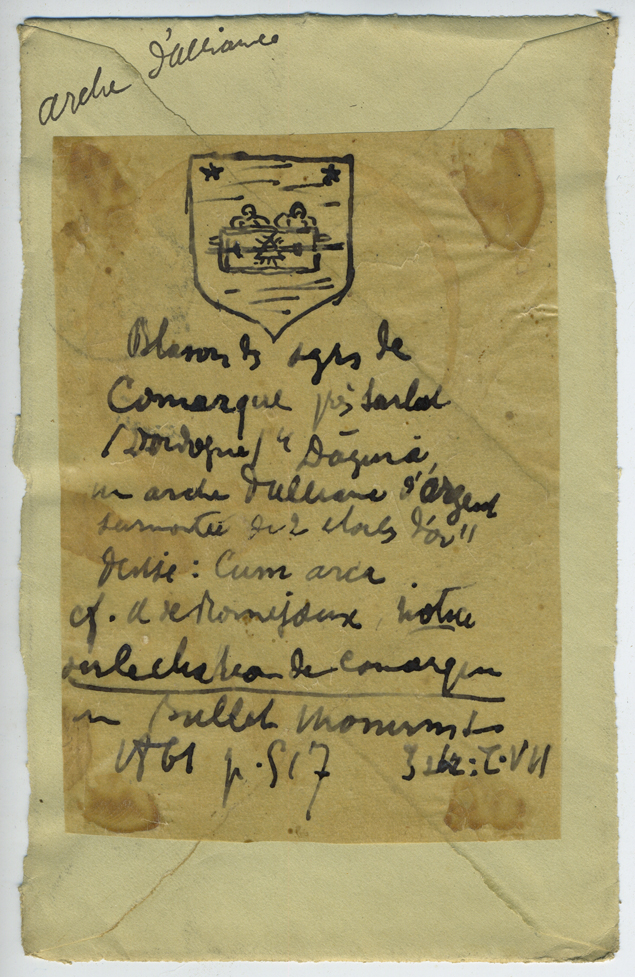 arche d'alliance
Blason des sgrs de
Comarque près Sarlat
(Dordogne) "D'azur à
un arche d'alliance d'argent
surmontée de 2 etoiles d'or"
Devise : Cum arca
cf. de Roumejoux, Notice
sur le chateau de Comarque
in Bullet. Monumental
1861 p. 517 3 sér: T. VII